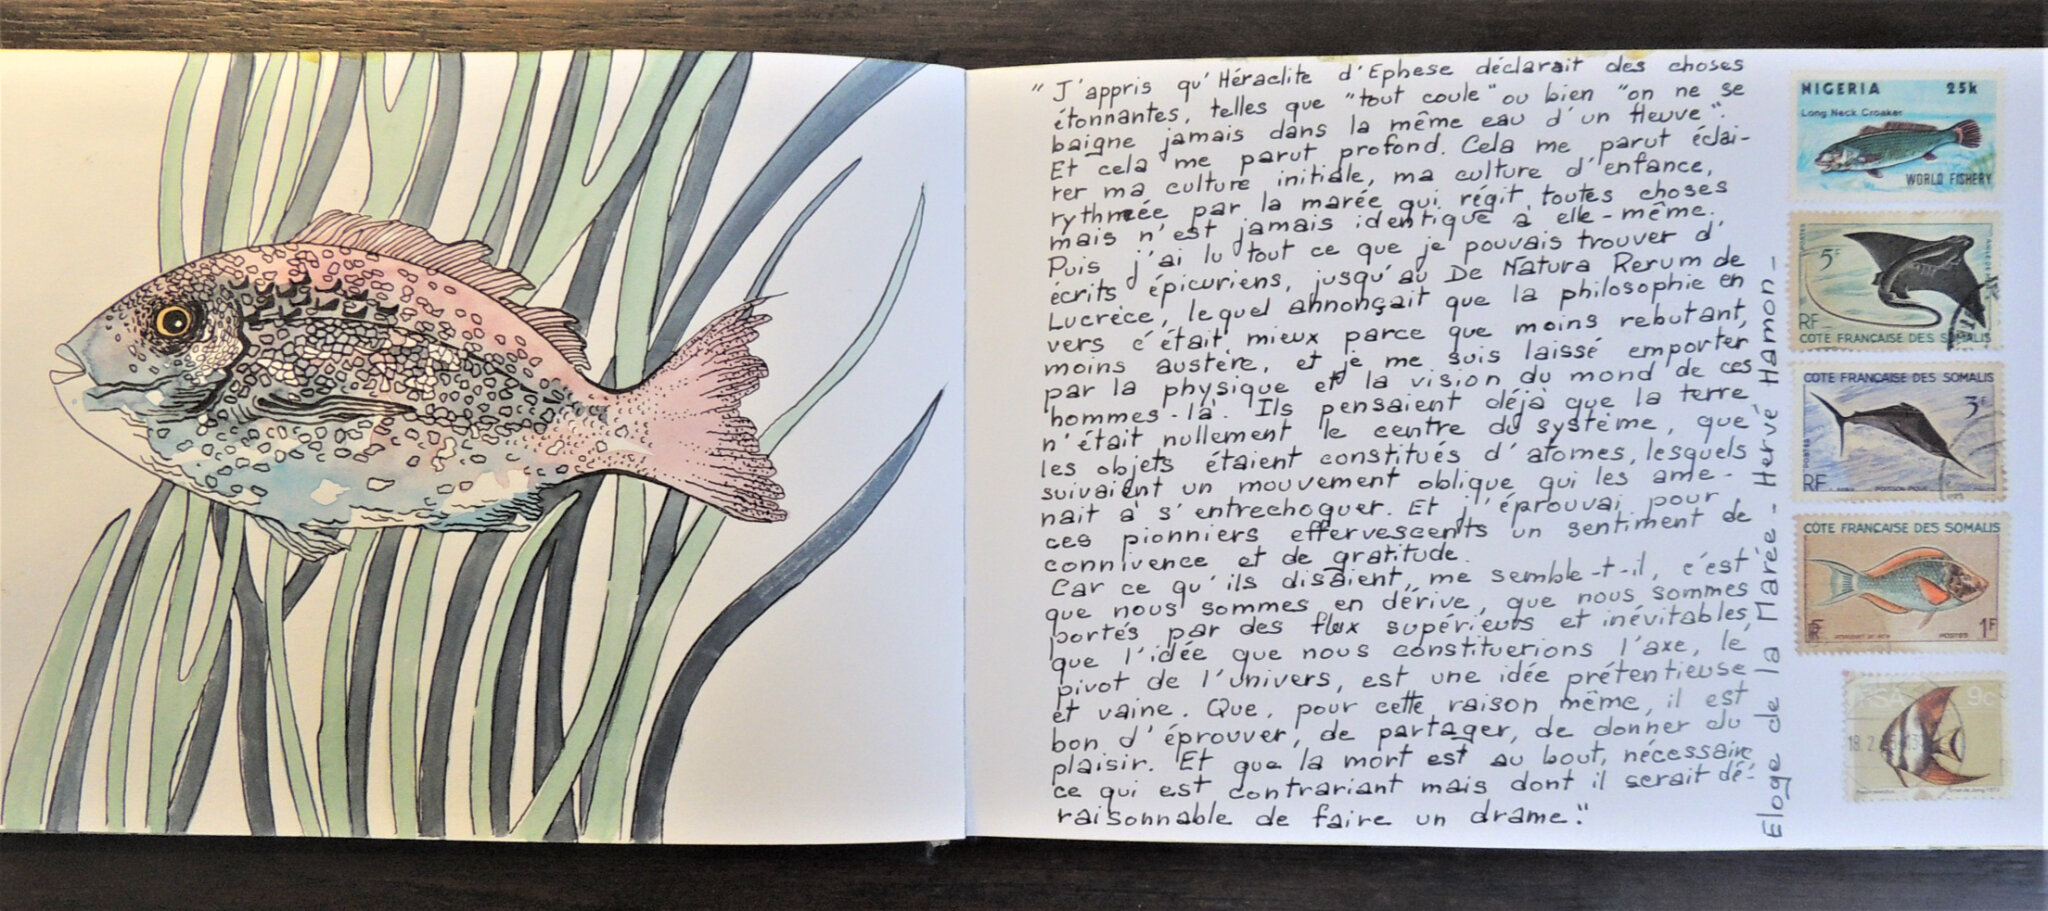 "J'appris qu'Héraclite d'Ephese déclarait des choses
étonnantes, telles que "tout coule" ou bien "on ne se
baigne jamais dans la même eau d'un fleuve".
Et cela me parut profond. Cela me parut éclai-
rer ma culture initiale, ma culture d'enfance,
rythmée par la marée qui régit toutes choses
mais n'est jamais identique à elle-même.
Puis j'ai lu tout ce que je pouvais trouver d'
écrits épicuriens, jusqu'au De Natura Rerum de
Lucrèce, lequel annonçait que la philosophie en
vers c'était mieux parce que moins rebutant,
moins austère, et je me suis laissé emporter
par la physique et la vision du mond de ces
hommes-là. Ils pensaient déjà que la terre
n'était nullement le centre du système, que
les objets étaient constitués d'atomes, lesquels
suivaient un mouvement oblique qui les ame-
nait à s'entrechoquer. Et j'éprouvai pour
ces pionniers effervescents un sentiment de
connivence et de gratitude.
Car ce qu'ils disaient, me semble-t-il, c'est
que nous sommes en dérive, que nous sommes
portés par des flux supérieurs et inévitables,
que l'idée que nous constituerions l'axe, le
pivot de l'univers, est une idée prétentieuse
et vaine. Que, pour cette raison même, il est
bon d'éprouver, de partager, de donner du
plaisir. Et que la mort est au bout, nécessaire
ce qui est contrariant mais dont il serait dé-
raisonnable de faire un drame."
Eloge de la Marée - Hervé Hamon -
NIGERIA 25k
Long Neck Croaker
WORLD FISHERY
5F
RF
CÔTE FRANÇAISE DES SOMALIS
CÔTE FRANÇAISE DES SOMALIS
3F
POSTES
RF
CÔTE FRANÇAISE DES SOMALIS
RF POSTES 1F
RSA 9c